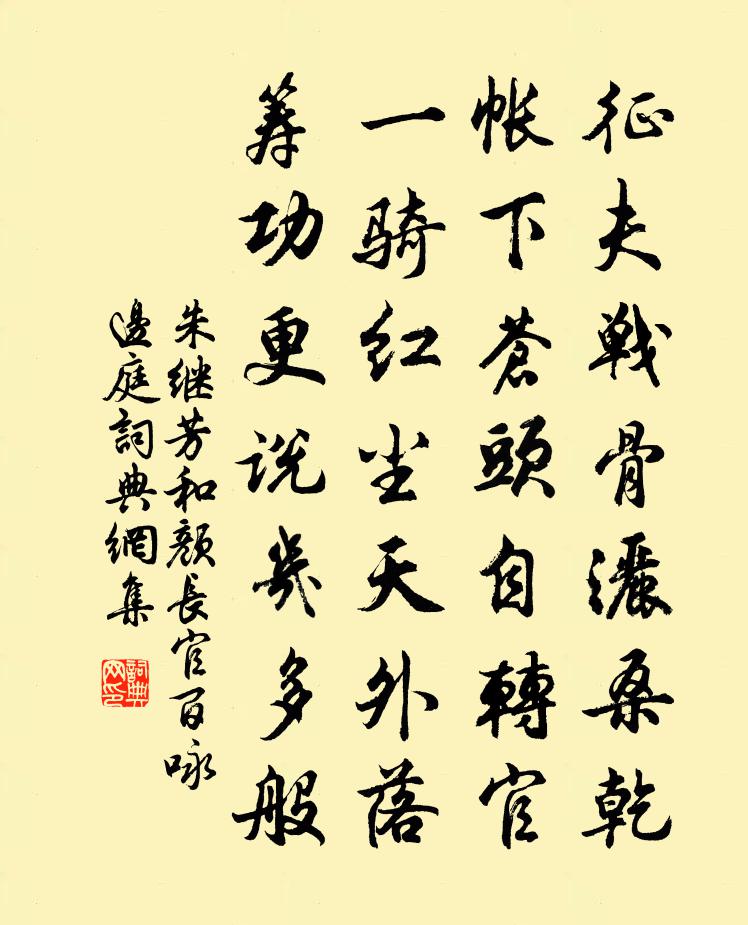 征夫戰骨灑桑乾
帳下蒼頭自轉官
一騎紅尘天外落
筭功更説幾多般
朱继芳和顔長官百咏
邊庭詞典網集
詞典网印